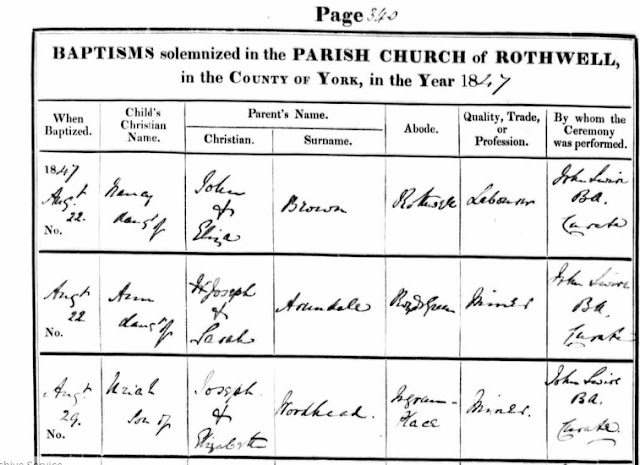 Page 340
BAPTISMS solemnized in the PARISH CHURCH of ROTHWELL,
in the COUNTY OF YORK, in the Year 1847
When Baptized.
Child's Christian Name.
Parent's Name.
Christian.
Surname.
Abode.
Quality, Trade, or Profession.
By whom the Ceremony was performed.
1847
Augt 22.
No.
Nancy
daugt of
John
&
Eliza
Brown
Rothwell
Labourer
John Swire
BA.
Curate
Augt 22
No.
Ann
daugt of
Joseph
&
Sarah
Arundale
Miner
John Swire
BA.
Curate
Augt 29.
No.
Uriah
Son of
Joseph
&
Elizabeth
Woodhead.
Miner.
John Swire
BA.
Curate.
chive Service